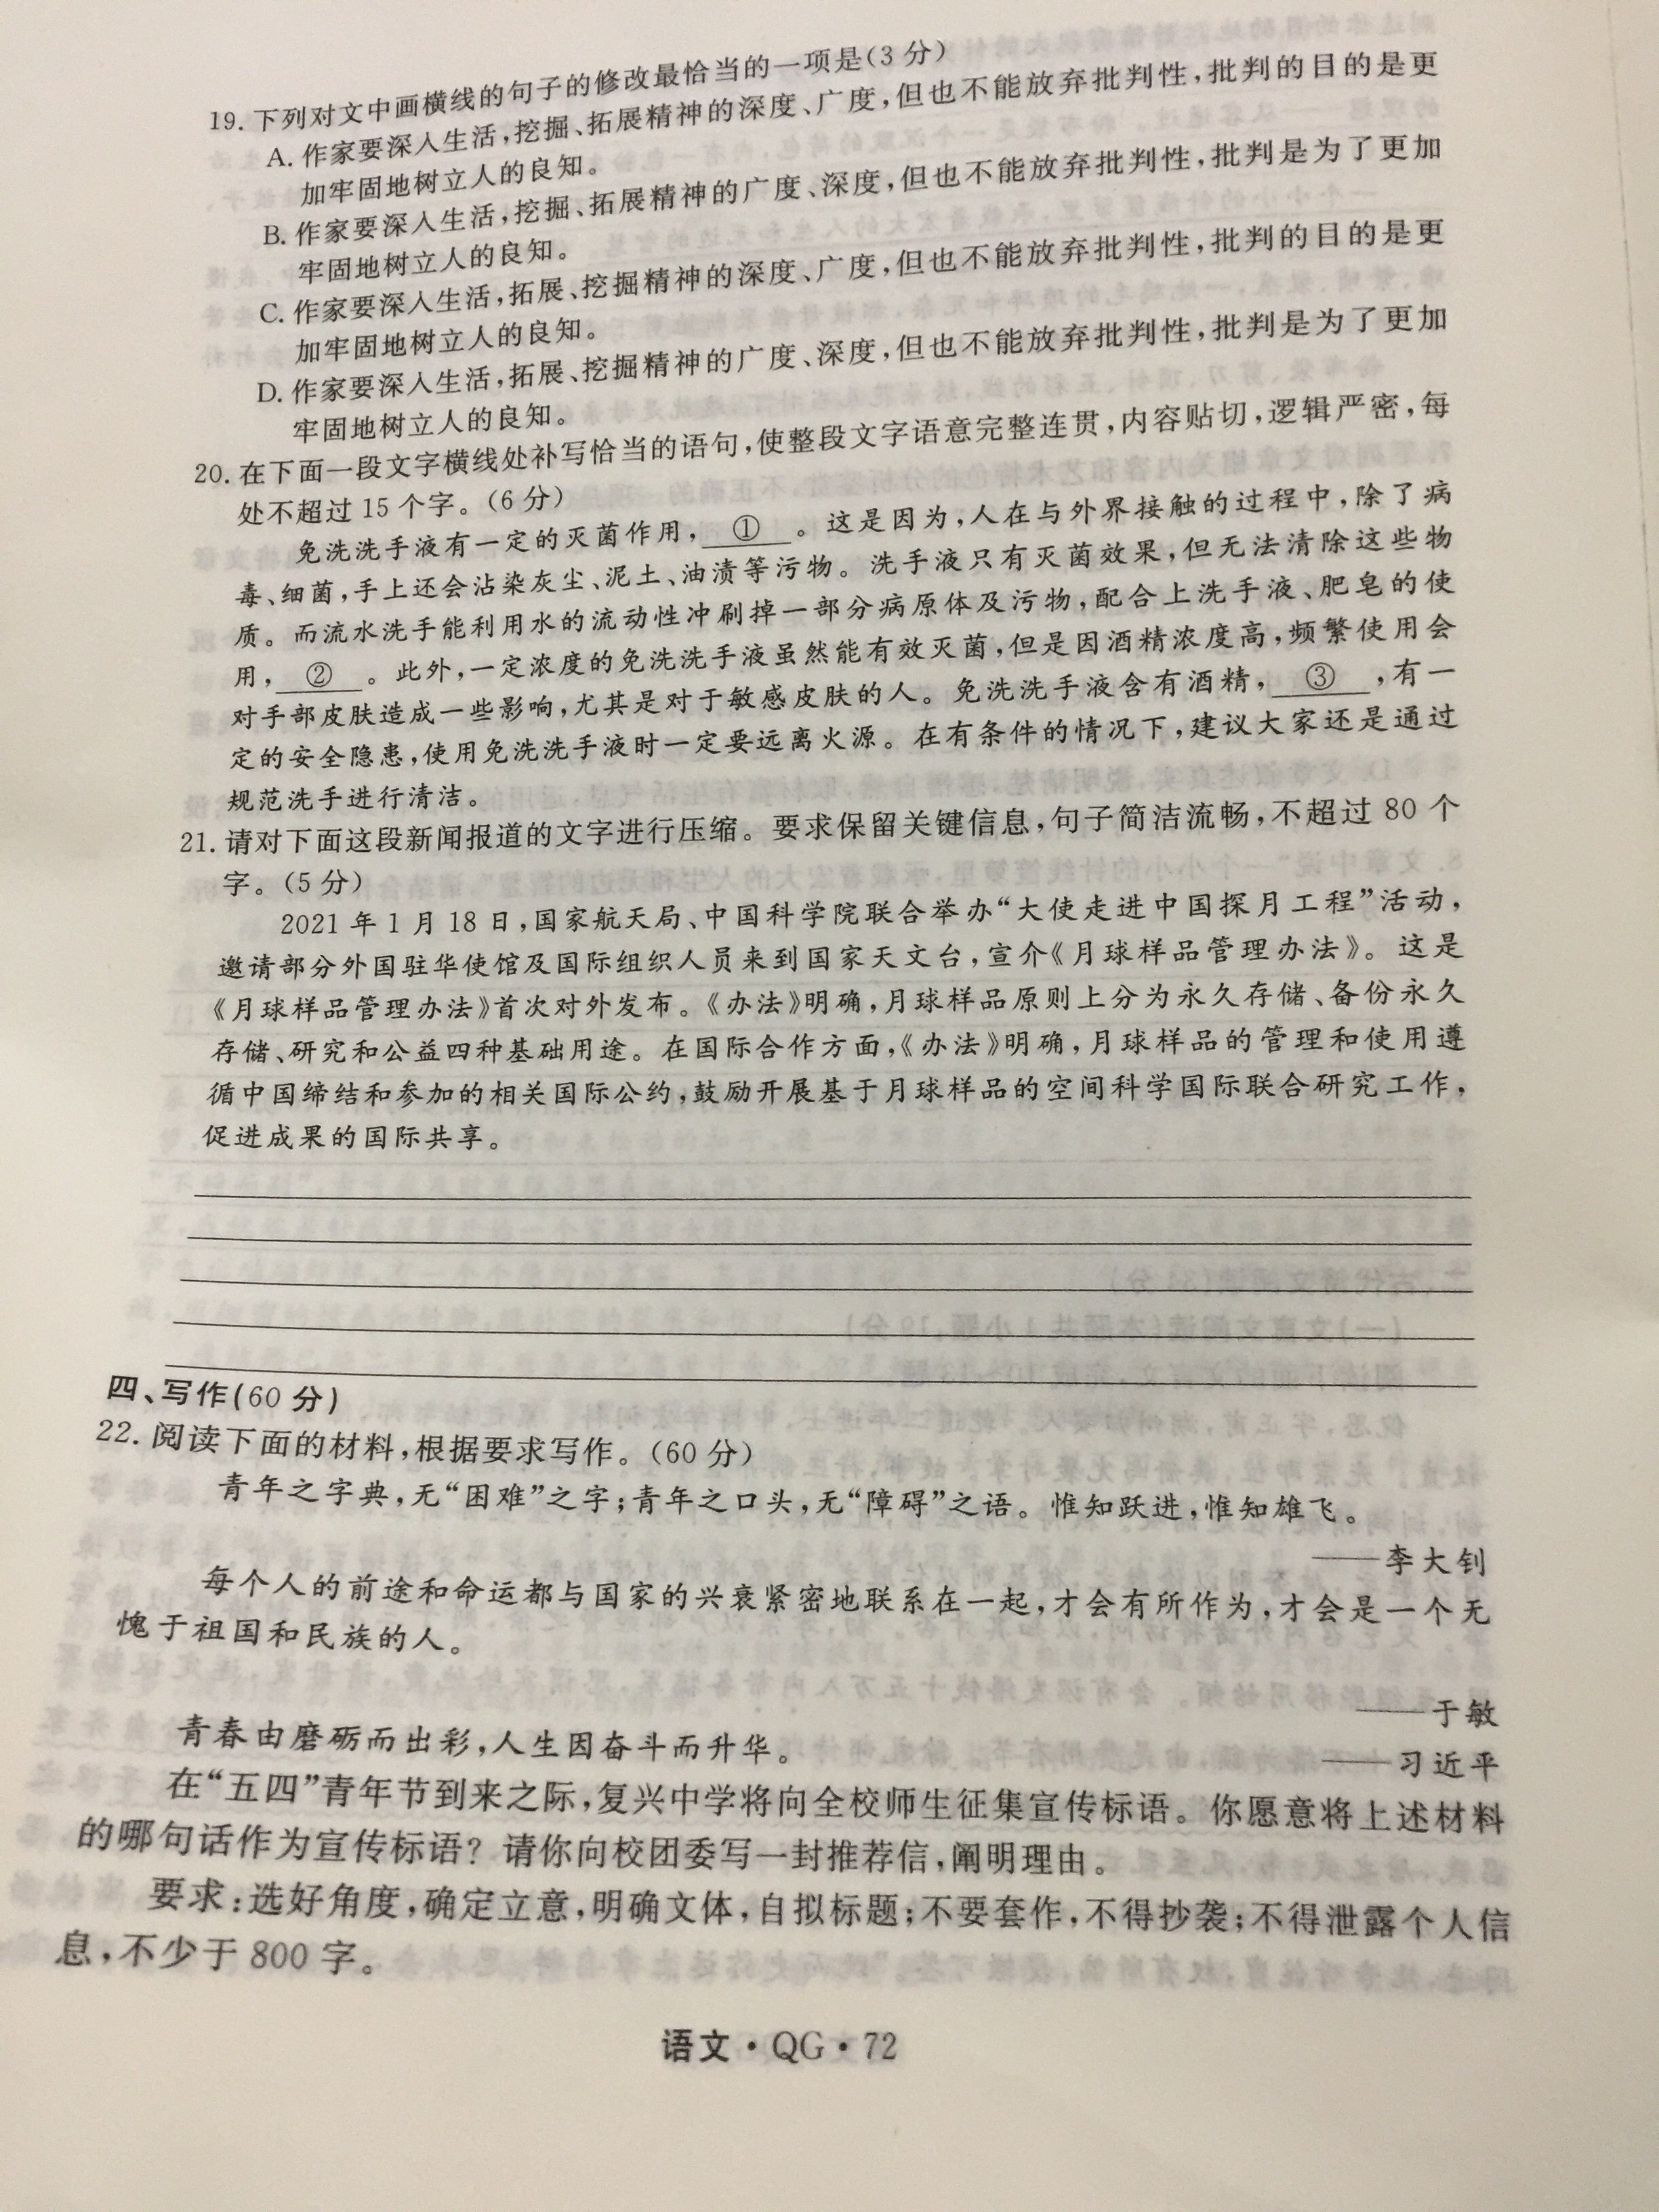 19. 下列对文中画横线的句子的修改最恰当的一项是(3 分)
A. 作家要深入生活,挖掘、拓展精神的深度、广度,但也不能放弃批判性,批判的目的是更
加牢固地树立人的良知。
B. 作家要深入生活,挖掘、拓展精神的广度、深度,但也不能放弃批判性,批判是为了更加
牢固地树立人的良知。
C. 作家要深入生活,拓展、挖掘精神的深度、广度,但也不能放弃批判性,批判的目的是更
加牢固地树立人的良知。
D. 作家要深入生活,拓展、挖掘精神的广度、深度,但也不能放弃批判性,批判是为了更加
牢固地树立人的良知。
20. 在下面一段文字横线处补写恰当的语句,使整段文字语意完整连贯,内容贴切,逻辑严密,每
处不超过 15 个字。(6 分)
免洗洗手液有一定的灭菌作用, ① 。这是因为,人在与外界接触的过程中,除了病
毒、细菌,手上还会沾染灰尘、泥土、油渍等污物。洗手液只有灭菌效果,但无法清除这些物
质。而流水洗手能利用水的流动性冲刷掉一部分病原体及污物,配合上洗手液、肥皂的使
用, ② 。此外,一定浓度的免洗洗手液虽然能有效灭菌,但是因酒精浓度高,频繁使用会
对手部皮肤造成一些影响,尤其是对于敏感皮肤的人。免洗洗手液含有酒精, ③ ,有一
定的安全隐患,使用免洗洗手液时一定要远离火源。在有条件的情况下,建议大家还是通过
规范洗手进行清洁。
21. 请对下面这段新闻报道的文字进行压缩。要求保留关键信息,句子简洁流畅,不超过 80 个
字。(5 分)
2021 年 1 月 18 日,国家航天局、中国科学院联合举办“大使走进中国探月工程”活动,
邀请部分外国驻华使馆及国际组织人员来到国家天文台,宣介《月球样品管理办法》。这是
《月球样品管理办法》首次对外发布。《办法》明确,月球样品原则上分为永久存储、备份永久
存储、研究和公益四种基础用途。在国际合作方面,《办法》明确,月球样品的管理和使用遵
循中国缔结和参加的相关国际公约,鼓励开展基于月球样品的空间科学国际联合研究工作,
促进成果的国际共享。
四、写作(60 分)
22. 阅读下面的材料,根据要求写作。(60 分)
青年之字典,无“困难”之字;青年之口头,无“障碍”之语。惟知跃进,惟知雄飞。
——李大钊
每个人的前途和命运都与国家的兴衰紧密地联系在一起,才会有所作为,才会是一个无
愧于祖国和民族的人。
——于敏
青春由磨砺而出彩,人生因奋斗而升华。
——习近平
在“五四”青年节到来之际,复兴中学将向全校师生征集宣传标语。你愿意将上述材料
的哪句话作为宣传标语?请你向校团委写一封推荐信,阐明理由。
要求:选好角度,确定立意,明确文体,自拟标题;不要套作,不得抄袭;不得泄露个人信
息,不少于 800 字。
语文·QG·72